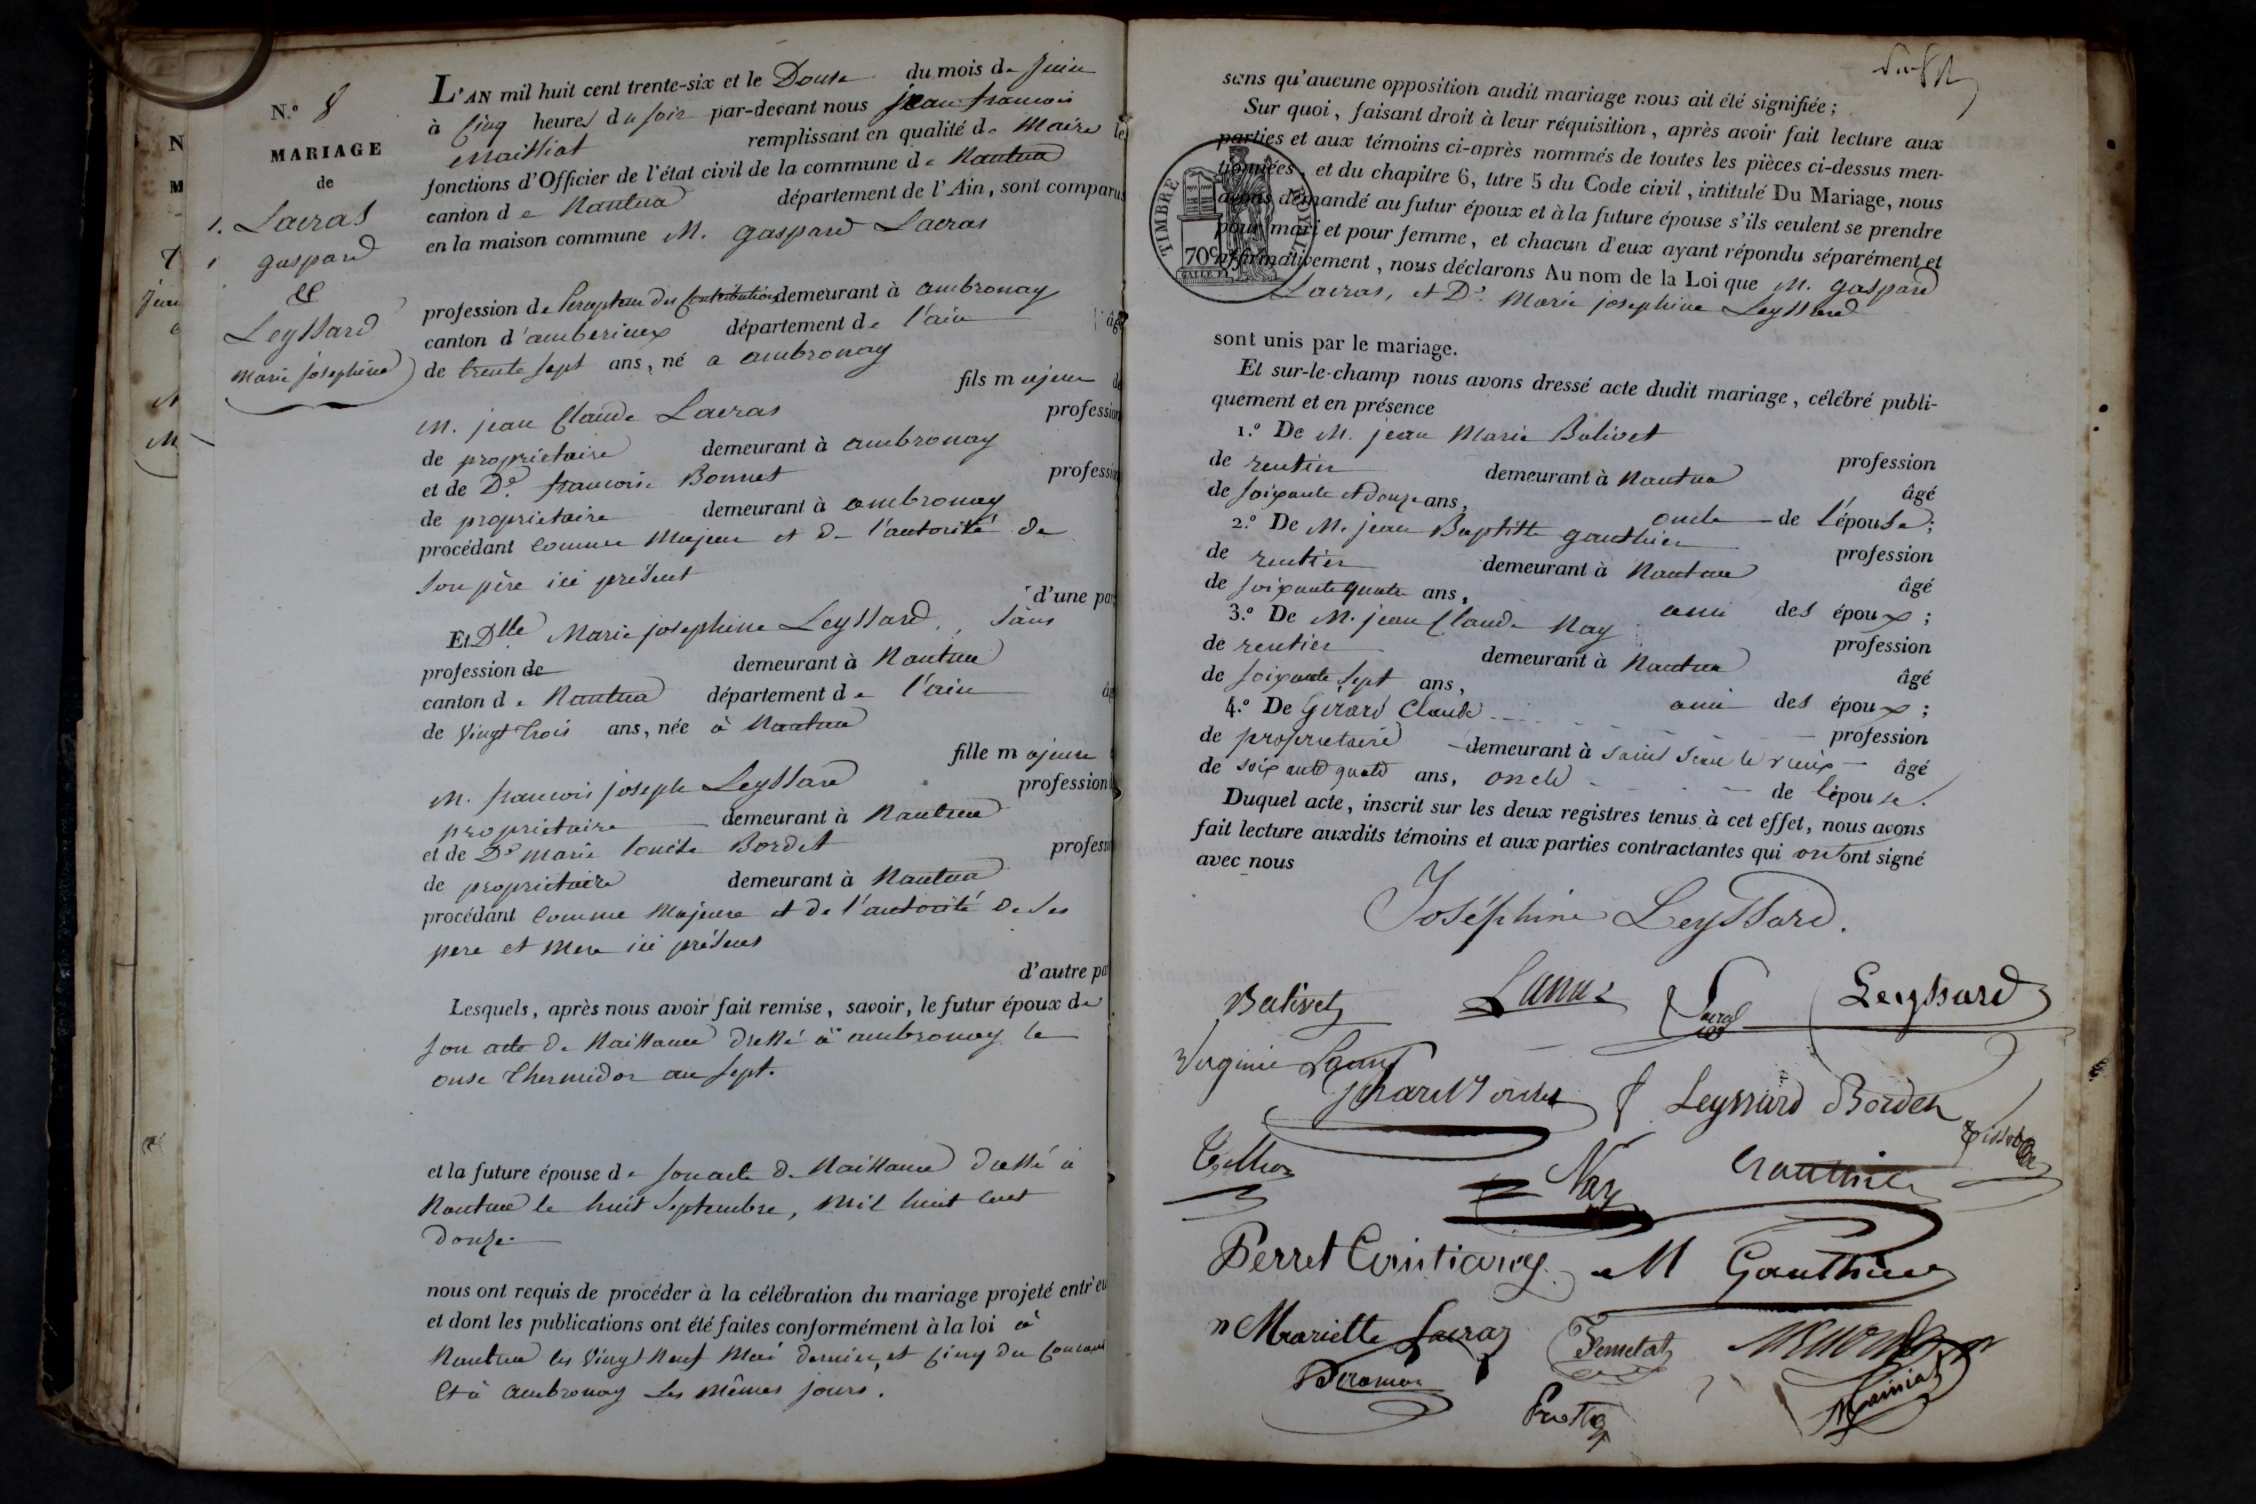 N.º 8
MARIAGE
de
Lacras
gaspard
&
Leyssard
Marie josephine
L'AN mil huit cent trente-six et le Douze du mois de juin
à Cinq heures du soir par-devant nous jean francois
Maissiat remplissant en qualité de Maire les
fonctions d'Officier de l'état civil de la commune de Nantua
canton de Nantua département de l'Ain, sont comparus
en la maison commune M. gaspard Lacras
profession de Percepteur des Contributions demeurant à ambronay
canton d'amberieux département de l'ain âgé
de trente sept ans, né a ambronay
fils majeur de
M. jean Claude Lacras profession
de proprietaire demeurant à ambronay
et de De. francoise Bonnet profession
de proprietaire demeurant à ambronay
procédant comme Majeur et de l'autorité de
son père ici présent
d'une part
Et Dlle Marie josephine Leyssard, sans
profession de demeurant à Nantua
canton de Nantua département de l'ain âg
de Vingt trois ans, née à Nantua
fille majeure
M. francois joseph Leyssard profession
proprietaire demeurant à Nantua
et de De Marie Bordet profession
de proprietaire demeurant à Nantua
procédant comme Majeure et de l'autorité de ses
pere et Mere ici présens
d'autre part
Lesquels, après nous avoir fait remise, savoir, le futur époux de
son acte de Naissance dressé à ambronay le
onse thermidor an sept.
et la future épouse de son acte de Naissance dressé à
Nantua le huit Septembre, Mil huit cent
douze
nous ont requis de procéder à la célébration du mariage projeté entr'eux
et dont les publications ont été faites conformément à la loi à
Nantua les Vingt Neuf Mai dernier, et Cinq du Courant
Et à ambronay les Mêmes jours.
sans qu'aucune opposition audit mariage nous ait été signifiée;
Sur quoi, faisant droit à leur réquisition, après avoir fait lecture aux
parties et aux témoins ci-après nommés de toutes les pièces ci-dessus men-
tionnées, et du chapitre 6, titre 5 du Code civil, intitulé Du Mariage, nous
avons demandé au futur époux et à la future épouse s'ils veulent se prendre
pour mari et pour femme, et chacun d'eux ayant répondu séparément et
affirmativement, nous déclarons Au nom de la Loi que M. gaspard
Lacras, et De. Marie josephine Leyssard
TIMBRE ROYAL
70c
sont unis par le mariage.
Et sur-le-champ nous avons dressé acte dudit mariage, célébré publi-
quement et en présence
1.º De M. jean Marie Balivet profession
de rentier demeurant à Nantua âgé
de soixante et douze ans, oncle de l'épouse;
2.º De M. jean Baptiste gauthier profession
de rentier demeurant à Nantua âgé
de soixante quatre ans, ami des époux;
3.º De M. jean Claude Nay profession
de rentier demeurant à Nantua âgé
de soixante sept ans, ami des époux;
4.º De Girard Claude profession
de proprietaire demeurant à saint jean le vieux âgé
de soixante quatre ans, oncle de l'épouse.
Duquel acte, inscrit sur les deux registres tenus à cet effet, nous avons
fait lecture auxdits témoins et aux parties contractantes qui ont signé
avec nous
Joséphine Leyssard.
Balivet Lacras Leyssard
Virginie
Leyssard Bordet
Nay Gauthier
Perret M Gauthier
Mariette Lacraz